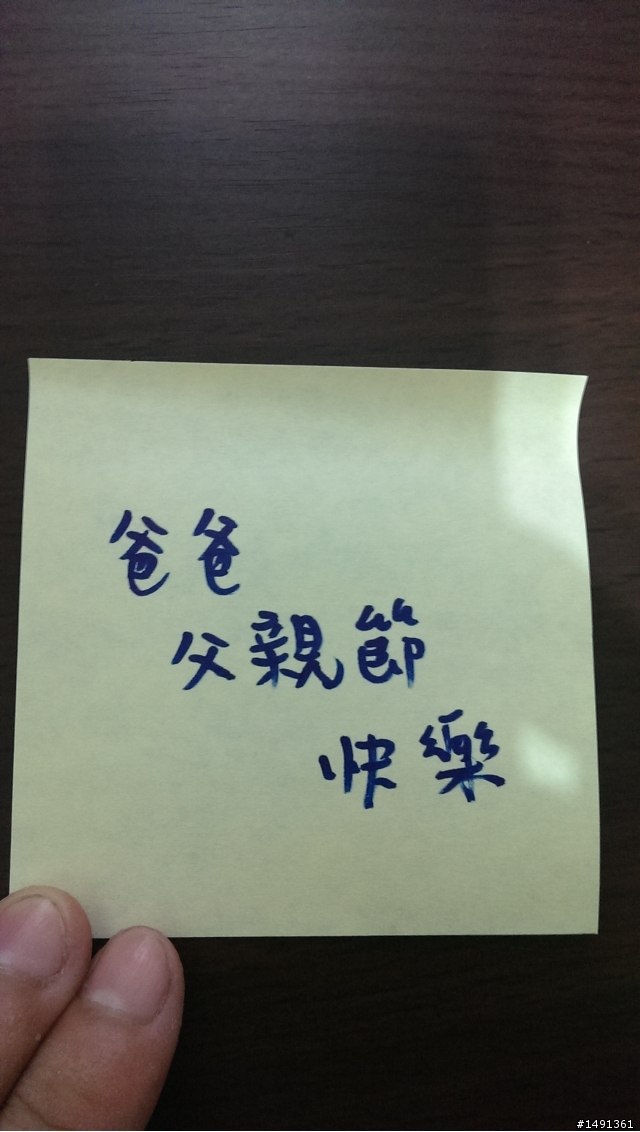 爸爸
父親節
快樂
#1491361